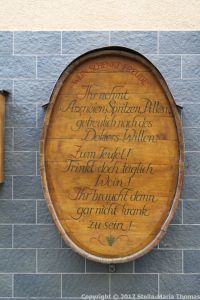 WEIN SCHENKT FREUDE
Ihr nehmt
Arzneien, Spritzen, Pillen,
getreulich nach des
Doktors Willen.
Zum Teufel!
Trinkt doch täglich
Wein!
Ihr braucht dann
gar nicht krank
zu sein!
Copyright © 2017 Stella-Maria Thomas